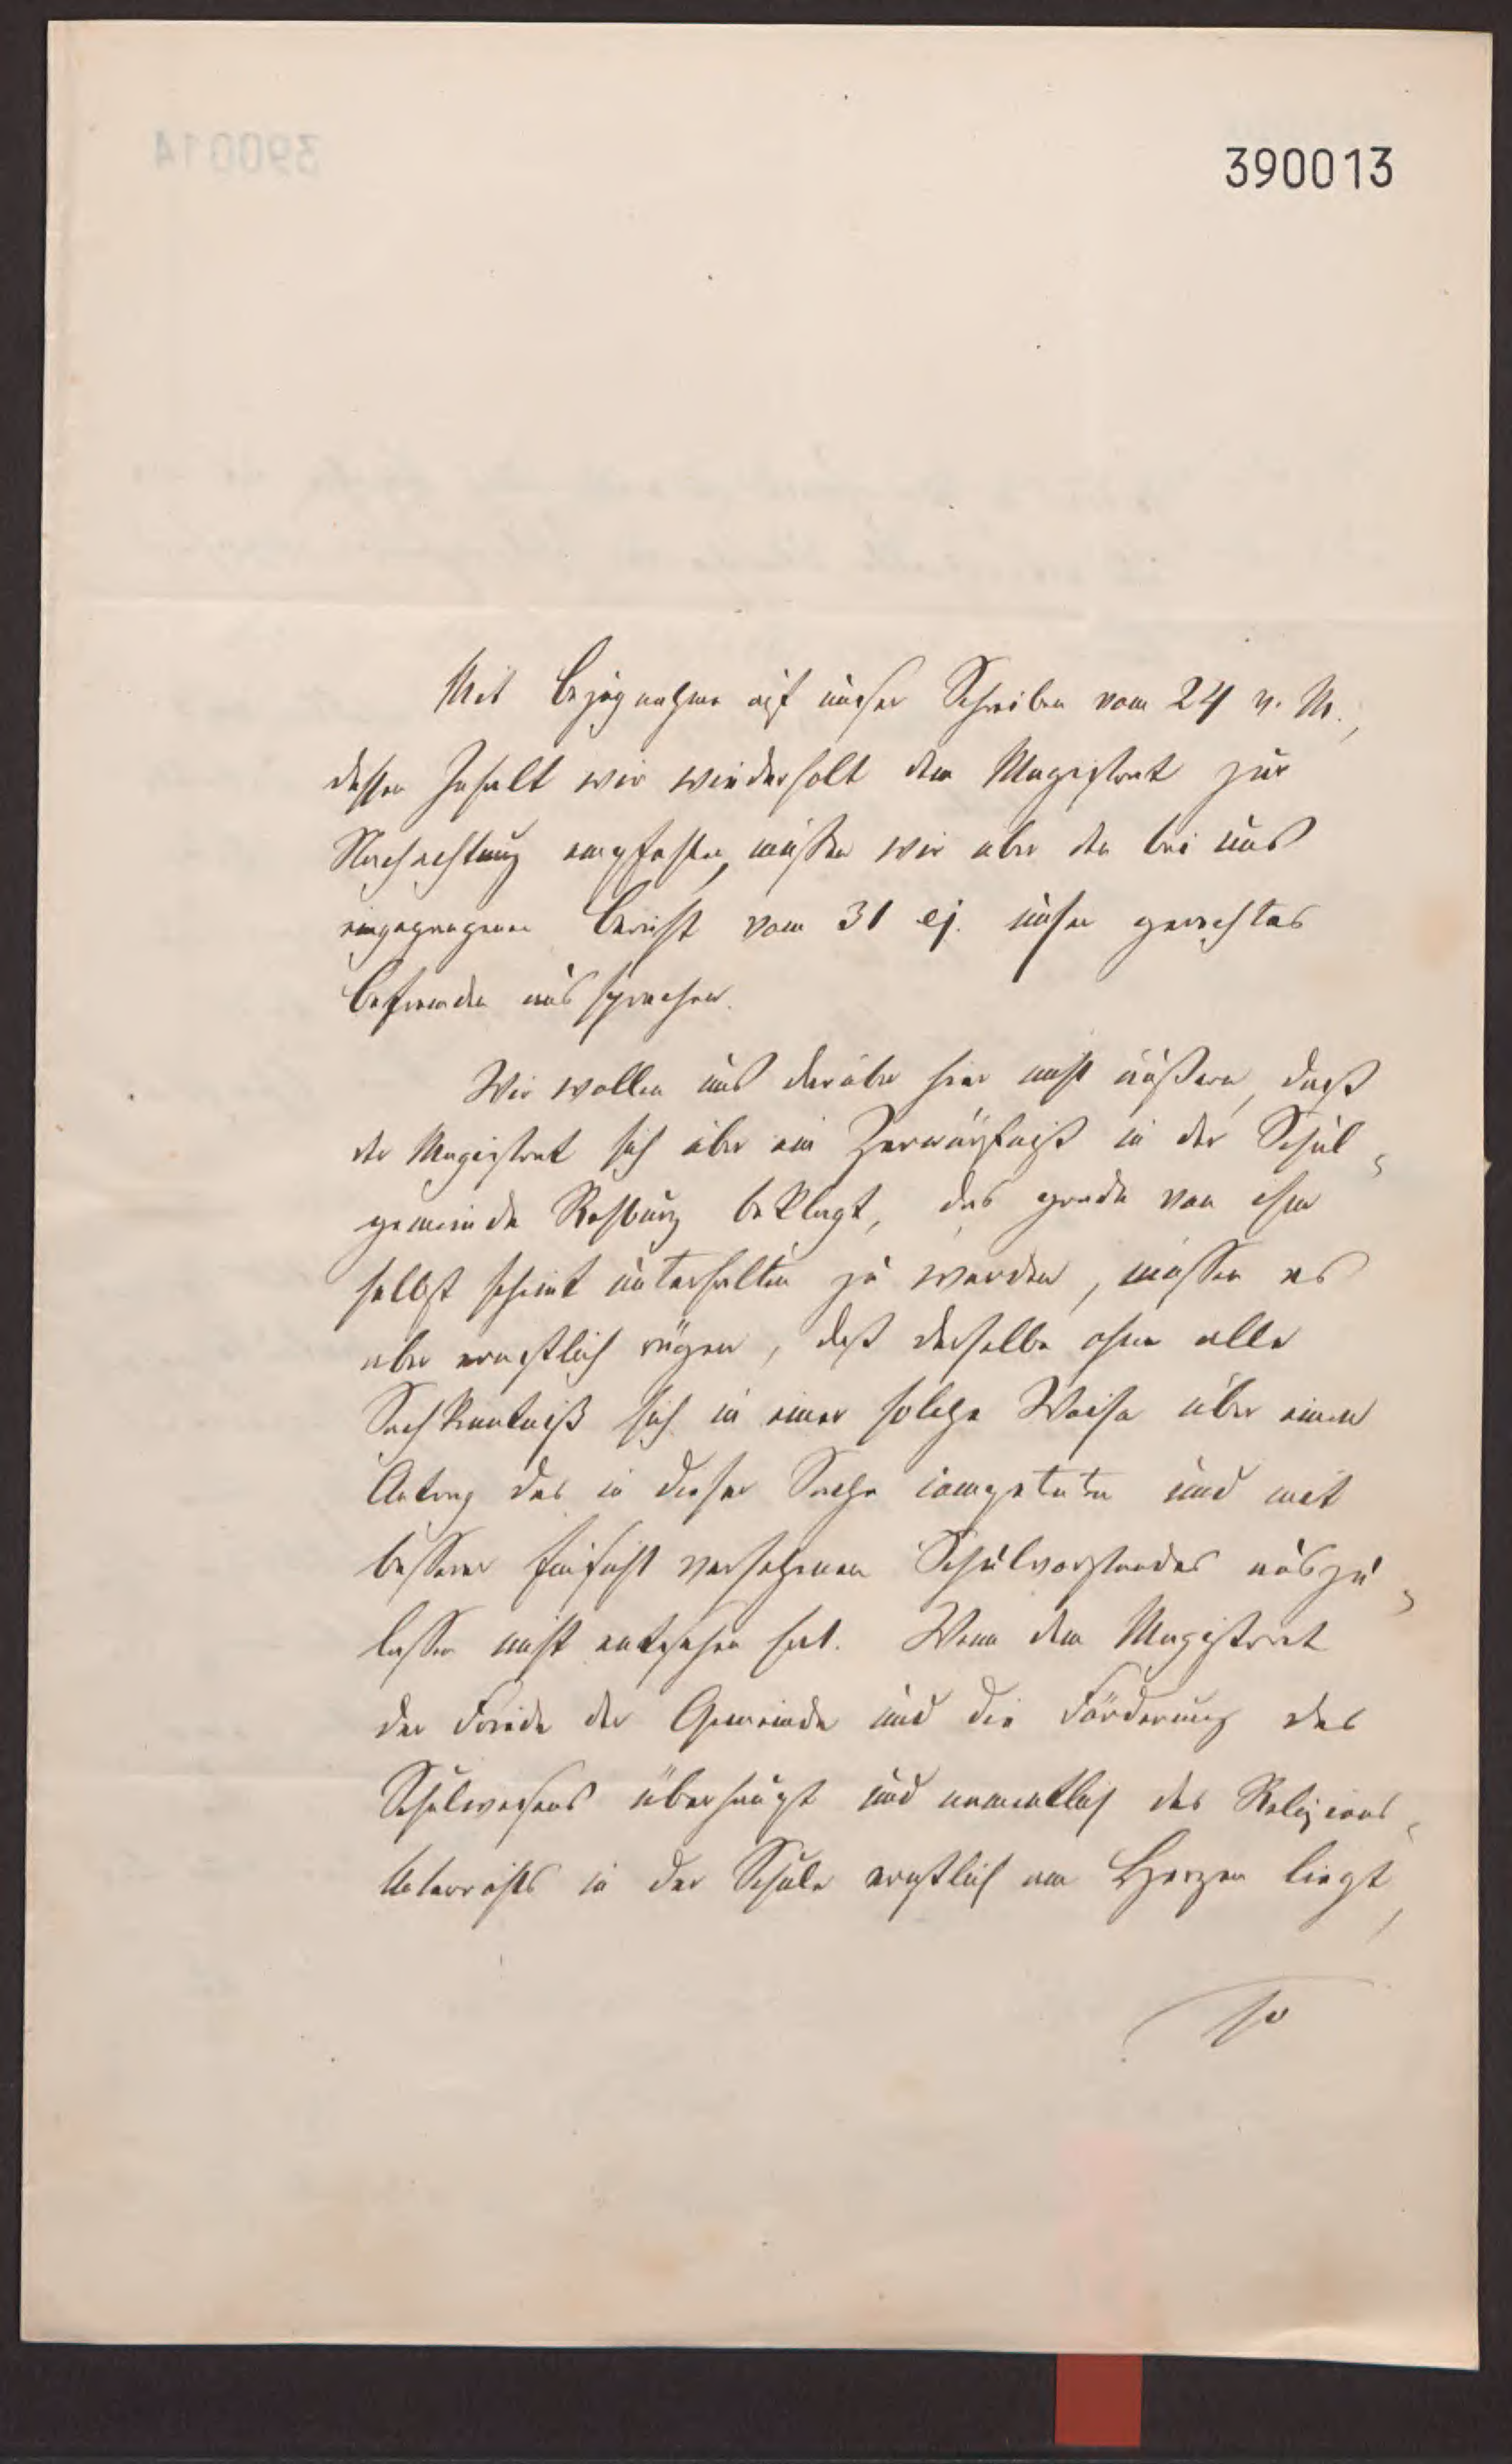 390013
Mit Bezugnahme auf unser Schreiben vom 24 v. M.,
dessen Inhalt wir wiederholt dem Magistrat zur
Nachachtung empfehlen, müssen wir über den bei uns
eingegangenen Bericht vom 31 ej. unser gerechtes
Befremden aussprechen.
Wir wollen uns darüber hier nicht äußern, daß
der Magistrat sich über ein Zerwürfniß in der Schul-
gemeinde Rehburg beklagt, das grade von ihm
selbst scheint unterhalten zu werden, müssen es
aber ernstlich rügen, daß derselbe ohne alle
Sachkenntniß sich in einer solchen Weise über einen
Antrag des in dieser Sache competenten und mit
besserer Einsicht versehenen Schulvorstandes auszu-
lassen nicht entsehen hat. Wenn dem Magistrat
der Friede der Gemeinde und die Förderung des
Schulwesens überhaupt und namentlich des Religions-
Unterrichts in der Schule ernstlich am Herzen liegt,
so